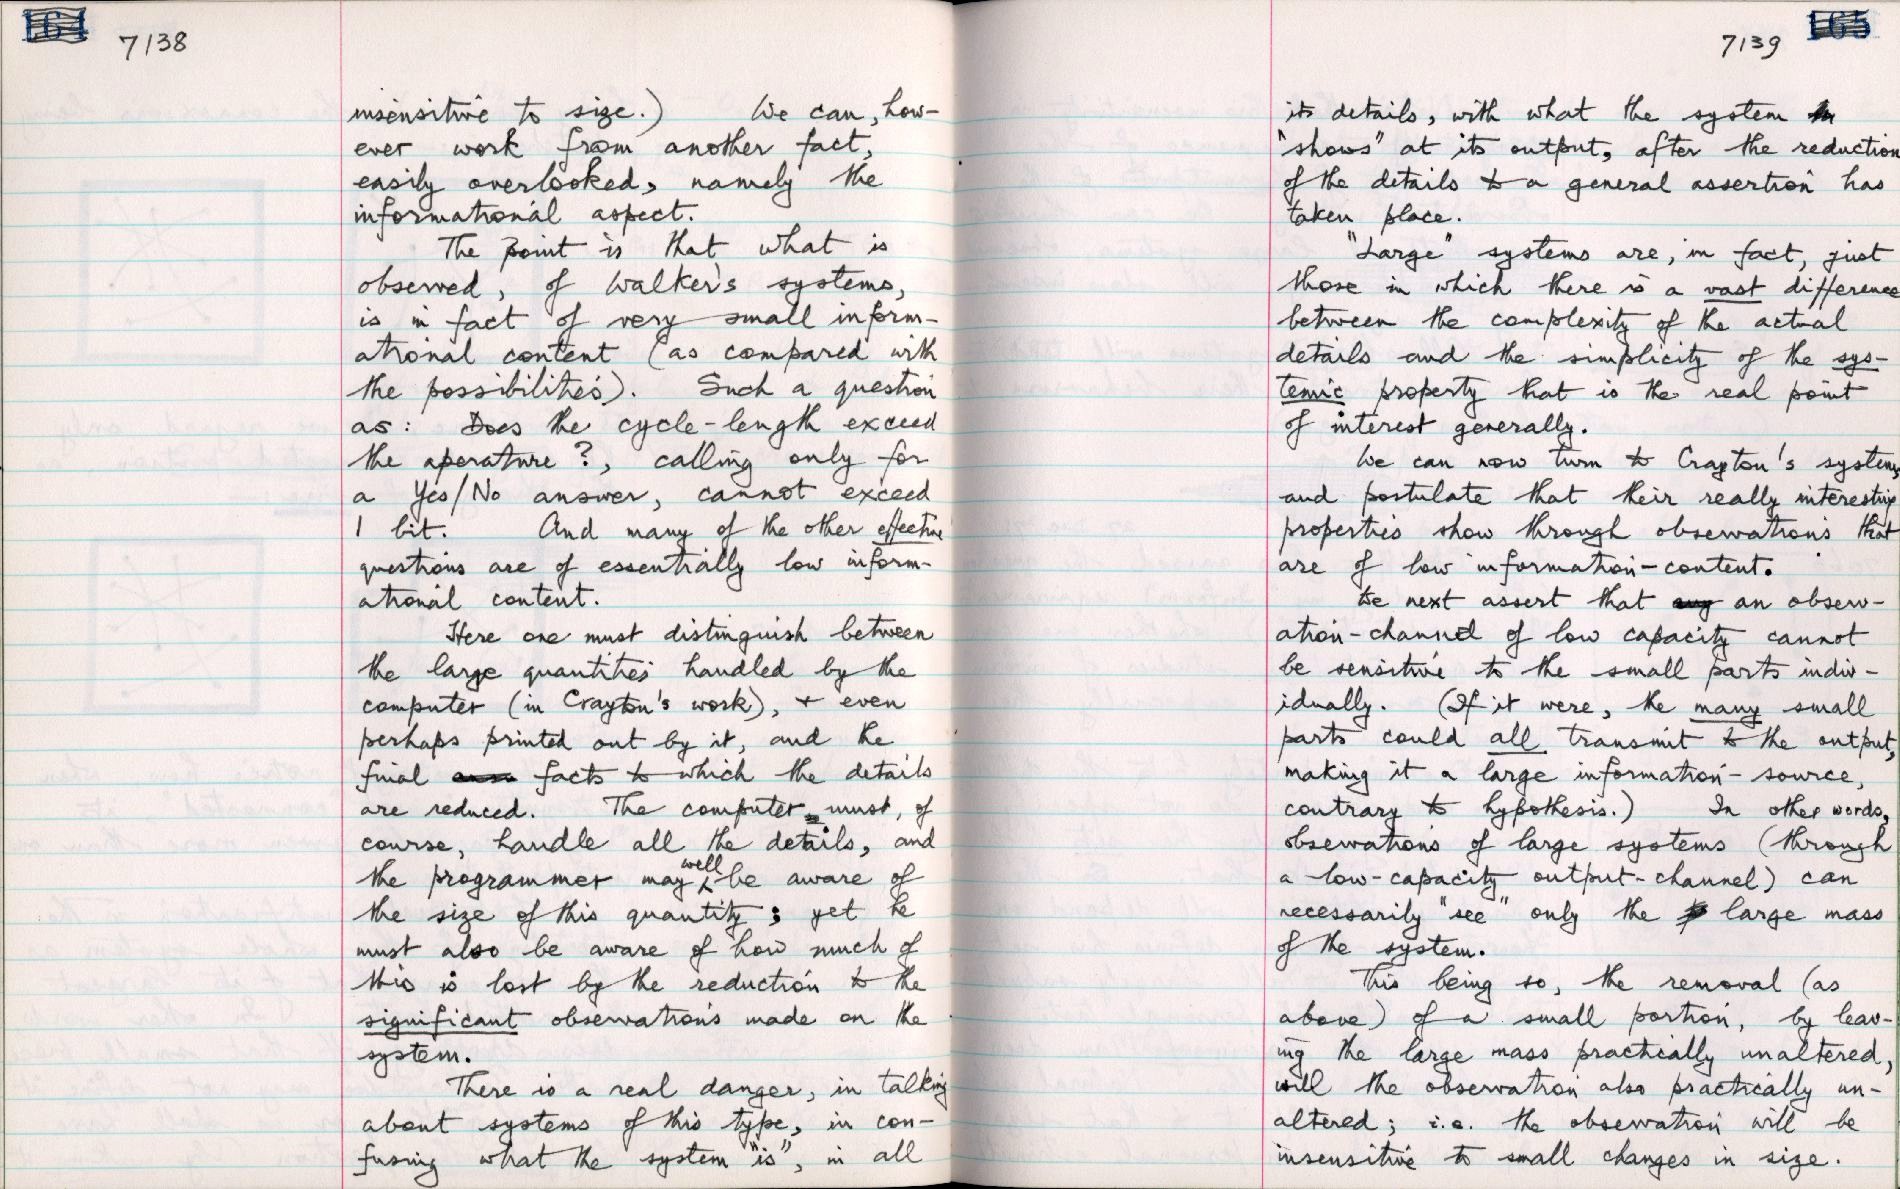 164
7138
insensitive to size.) We can, how-
ever work from another fact,
easily overlooked, namely the
informational aspect.
The point is that what is
observed, of Walker's systems,
is in fact of very small inform-
ational content (as compared with
the possibilities). Such a question
as: Does the cycle-length exceed
the aperature?, calling only for
a Yes/No answer, cannot exceed
1 bit. And many of the other effective
questions are of essentially low inform-
ational content.
Here one must distinguish between
the large quantities handled by the
computer (in Crayton's work), + even
perhaps printed out by it, and the
final facts to which the details
are reduced. The computer must, of
course, handle all the details, and
the programmer may well be aware of
the size of this quantity; yet he
must also be aware of how much of
this is lost by the reduction to the
significant observations made on the
system.
There is a real danger, in talking
about systems of this type, in con-
fusing what the system "is", in all
165
7139
its details, with what the system
"shows" at its output, after the reduction
of the details to a general assertion has
taken place.
"Large" systems are, in fact, just
those in which there is a vast difference
between the complexity of the actual
details and the simplicity of the sys-
temic property that is the real point
of interest generally.
We can now turn to Crayton's systems,
and postulate that their really interesting
properties show through observations that
are of low information-content.
We next assert that any an observ-
ation-channel of low capacity cannot
be sensitive to the small parts indiv-
idually. (If it were, the many small
parts could all transmit to the output,
making it a large information-source,
contrary to hypothesis.) In other words,
observations of large systems (through
a low-capacity output-channel) can
necessarily "see" only the large mass
of the system.
This being so, the removal (as
above) of a small portion, by leav-
ing the large mass practically unaltered,
will the observation also practically un-
altered; i.e. the observation will be
insensitive to small changes in size.